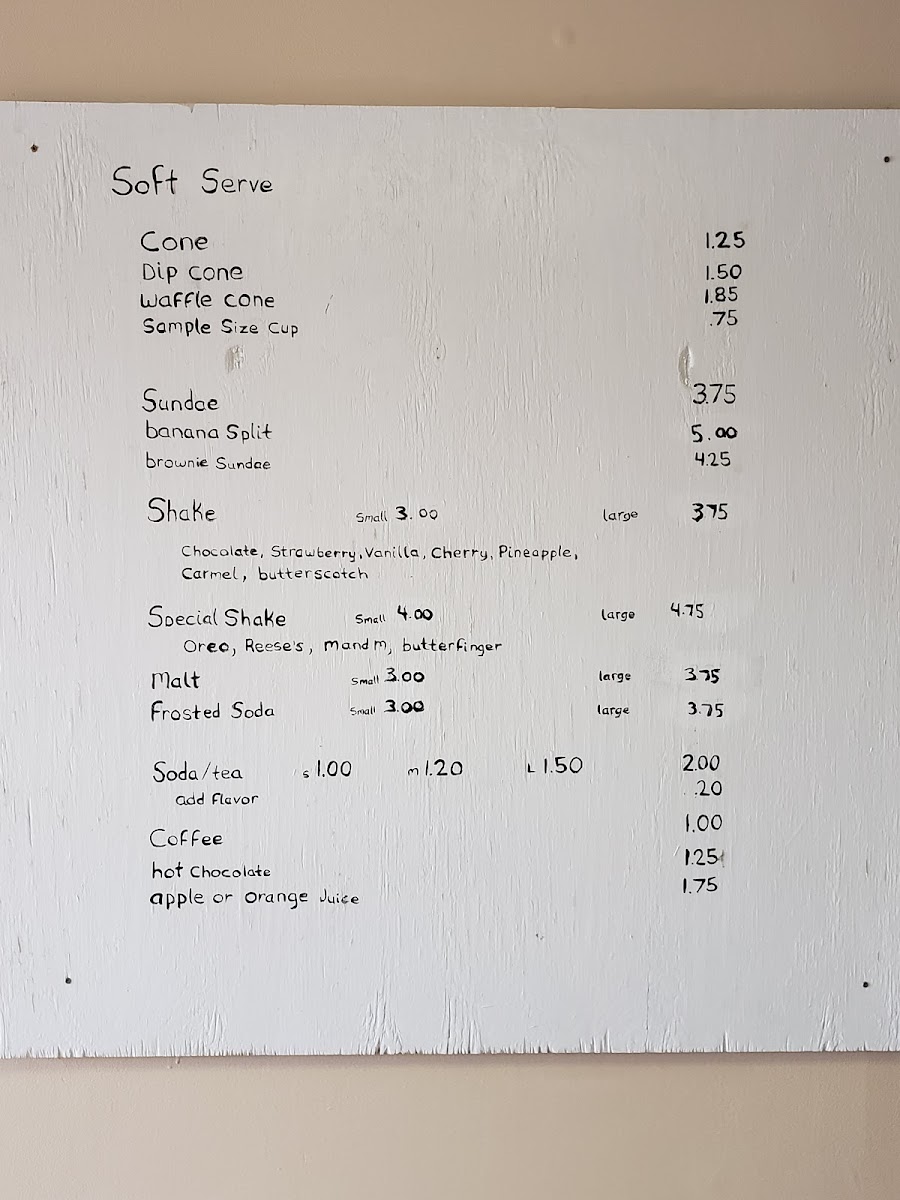 Soft Serve
Cone 1.25
Dip cone 1.50
waffle cone 1.85
Sample Size Cup .75
Sundae 3.75
banana Split 5.00
brownie Sundae 4.25
Shake Small 3.00 large 3.75
Chocolate, Strawberry, Vanilla, Cherry, Pineapple,
Carmel, butterscotch
Special Shake Small 4.00 large 4.75
Oreo, Reese's, mandm, butterfinger
Malt Small 3.00 large 3.75
Frosted Soda Small 3.00 large 3.75
Soda/tea s 1.00 m 1.20 L 1.50 2.00
add flavor .20
Coffee 1.00
hot Chocolate 1.25
apple or orange Juice 1.75